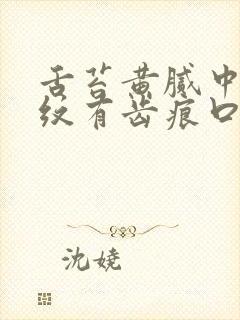 舌苔黄腻中
纹有齿痕口
沈娆